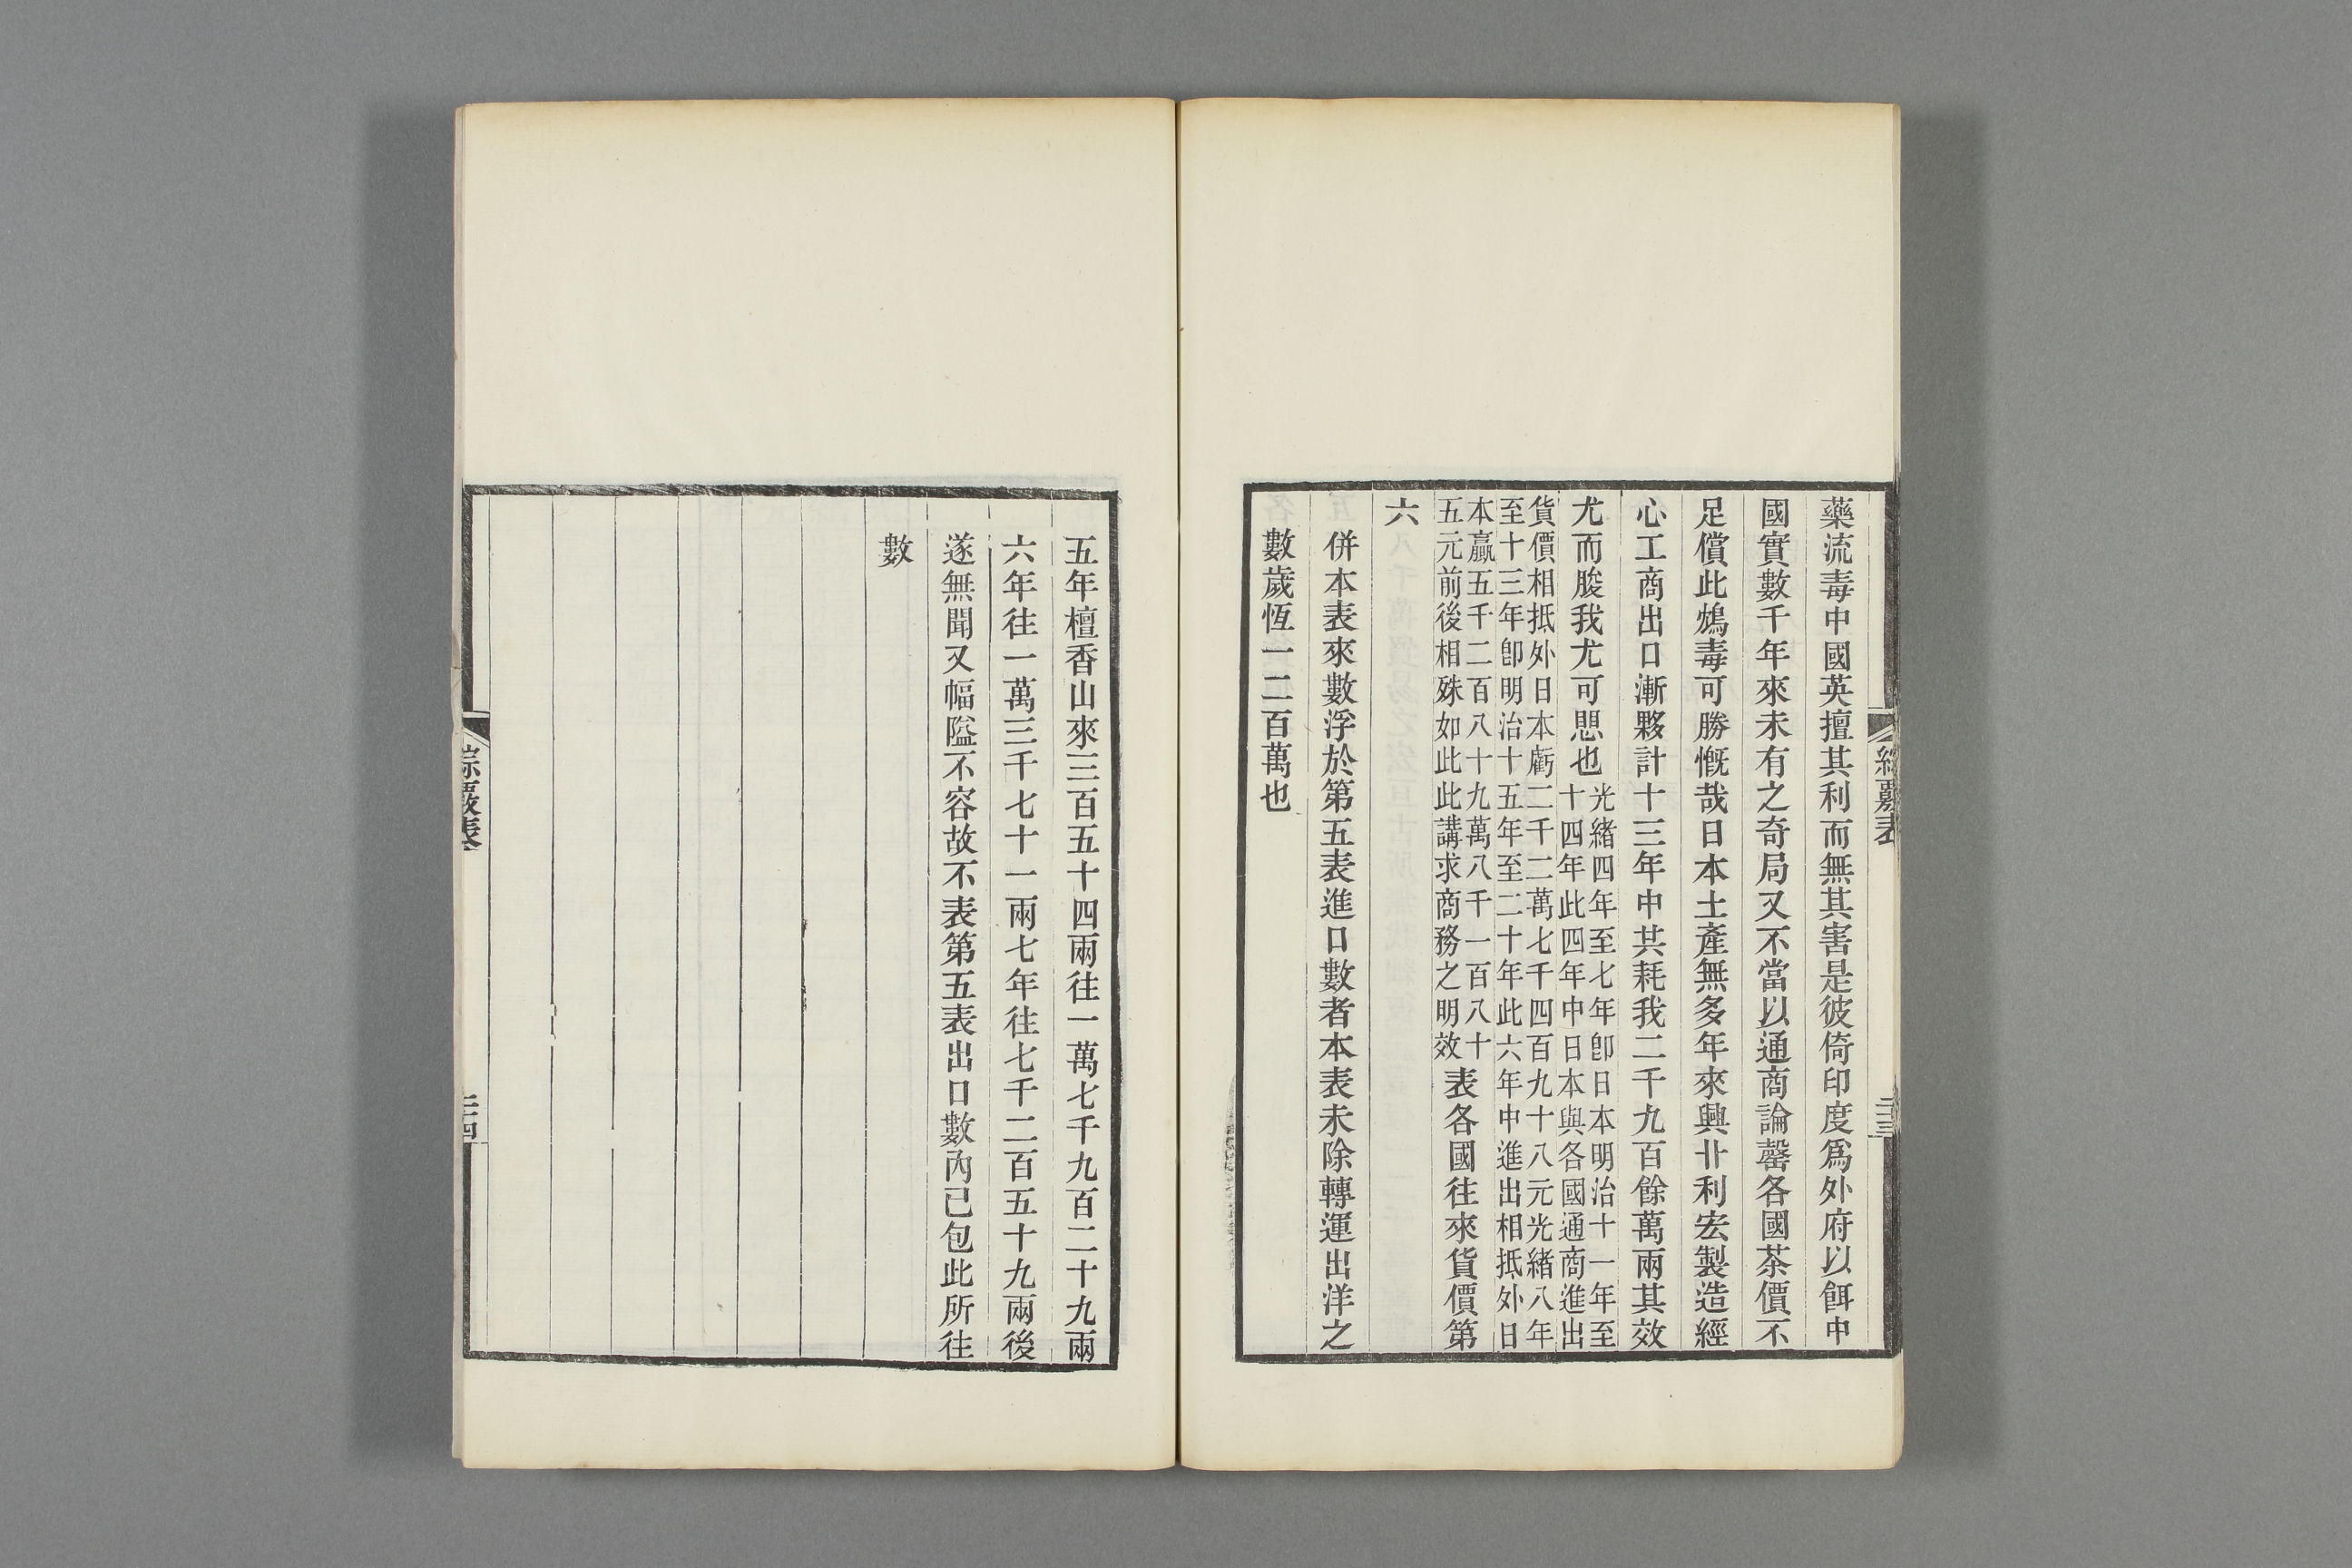 藥流毒中國英擅其利而無其害是彼倚印度爲外府以餌中
國實數千年來未有之奇局又不當以通商論罄各國茶價不
足償此鴆毒可勝慨哉日本土產無多年來興卝利宏製造經
心工商出口漸夥計十三年中共耗我二千九百餘萬兩其效
尤而朘我尤可思也光緒四年至七年卽日本明治十一年至
十四年此四年中日本與各國通商進出
貨價相抵外日本虧二千二萬七千四百九十八元光緒八年
至十三年卽明治十五年至二十年此六年中進出相抵外日
本贏五千二百八十九萬八千一百八十
五元前後相殊如此此講求商務之明效表各國往來貨價第
六
併本表來數浮於第五表進口數者本表未除轉運出洋之
數歲恆一二百萬也
五年檀香山來三百五十四兩往一萬七千九百二十九兩
六年往一萬三千七十一兩七年往七千二百五十九兩後
遂無聞又幅隘不容故不表第五表出口數內已包此所往
數
綜覈表
二十三
綜覈表
二十四